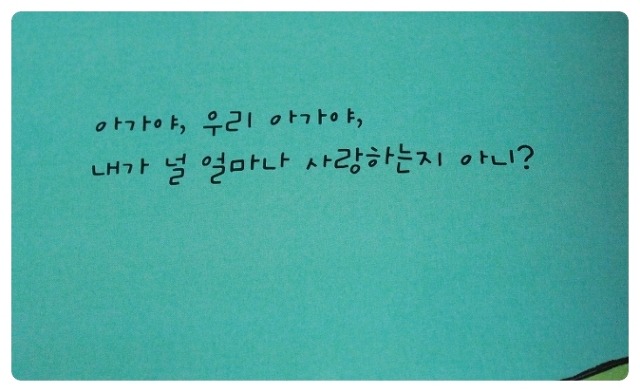 아가야, 우리 아가야,
내가 널 얼마나 사랑하는지 아니?